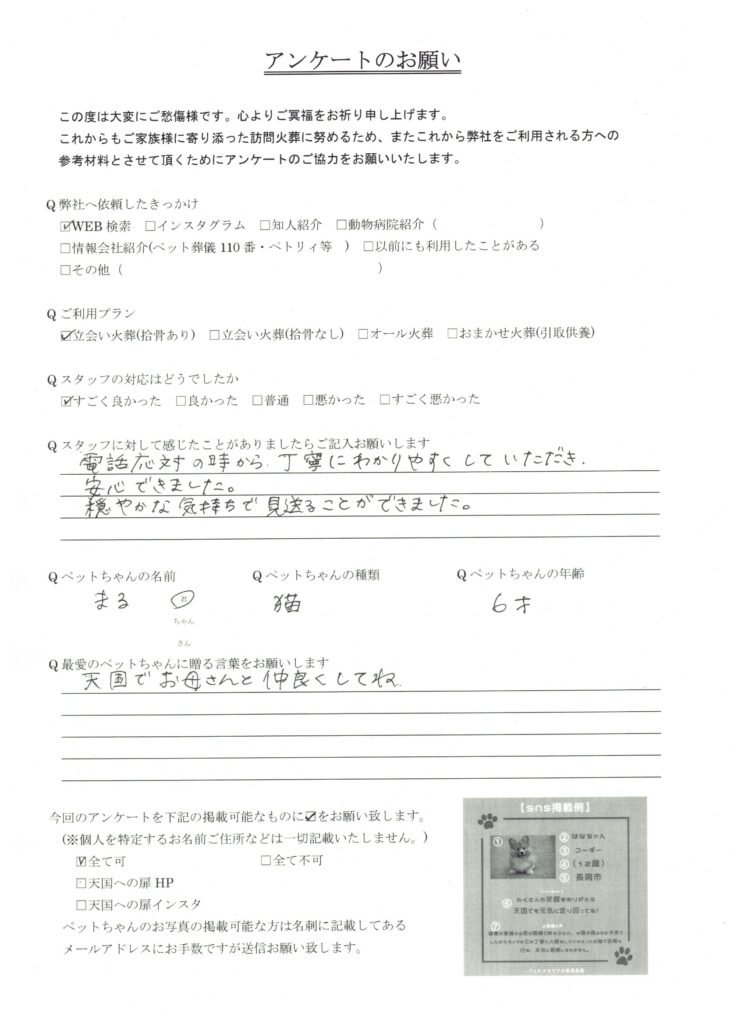 アンケートのお願い
この度は大変にご愁傷様です。心よりご冥福をお祈り申し上げます。
これからもご家族様に寄り添った訪問火葬に努めるため、またこれから弊社をご利用される方への
参考材料とさせて頂くためにアンケートのご協力をお願いいたします。
Q 弊社へ依頼したきっかけ
☑WEB 検索 □インスタグラム □知人紹介 □動物病院紹介（ ）
□情報会社紹介(ペット葬儀 110 番・ペトリィ等 ) □以前にも利用したことがある
□その他（ ）
Q ご利用プラン
☑立会い火葬(拾骨あり) □立会い火葬(拾骨なし) □オール火葬 □おまかせ火葬(引取供養)
Q スタッフの対応はどうでしたか
☑すごく良かった □良かった □普通 □悪かった □すごく悪かった
Q スタッフに対して感じたことがありましたらご記入お願いします
電話応対の時から、丁寧にわかりやすくしていただき、
安心できました。
穏やかな気持ちで見送ることができました。
Q ペットちゃんの名前 Q ペットちゃんの種類 Q ペットちゃんの年齢
まる 猫 6才
ちゃん
さん
Q 最愛のペットちゃんに贈る言葉をお願いします
天国でお母さんと仲良くしてね
今回のアンケートを下記の掲載可能なものに☑をお願い致します。
(※個人を特定するお名前ご住所などは一切記載いたしません。)
☑全て可 □全て不可
□天国への扉 HP
□天国への扉インスタ
ペットちゃんのお写真の掲載可能な方は名刺に記載してある
メールアドレスにお手数ですが送信お願い致します。
【sns掲載例】
① ② はなちゃん
③ コーギー
④ (12歳)
⑤ 長岡市
⑥ たくさんの笑顔をありがとう
天国でも元気に走り回ってね!
⑦